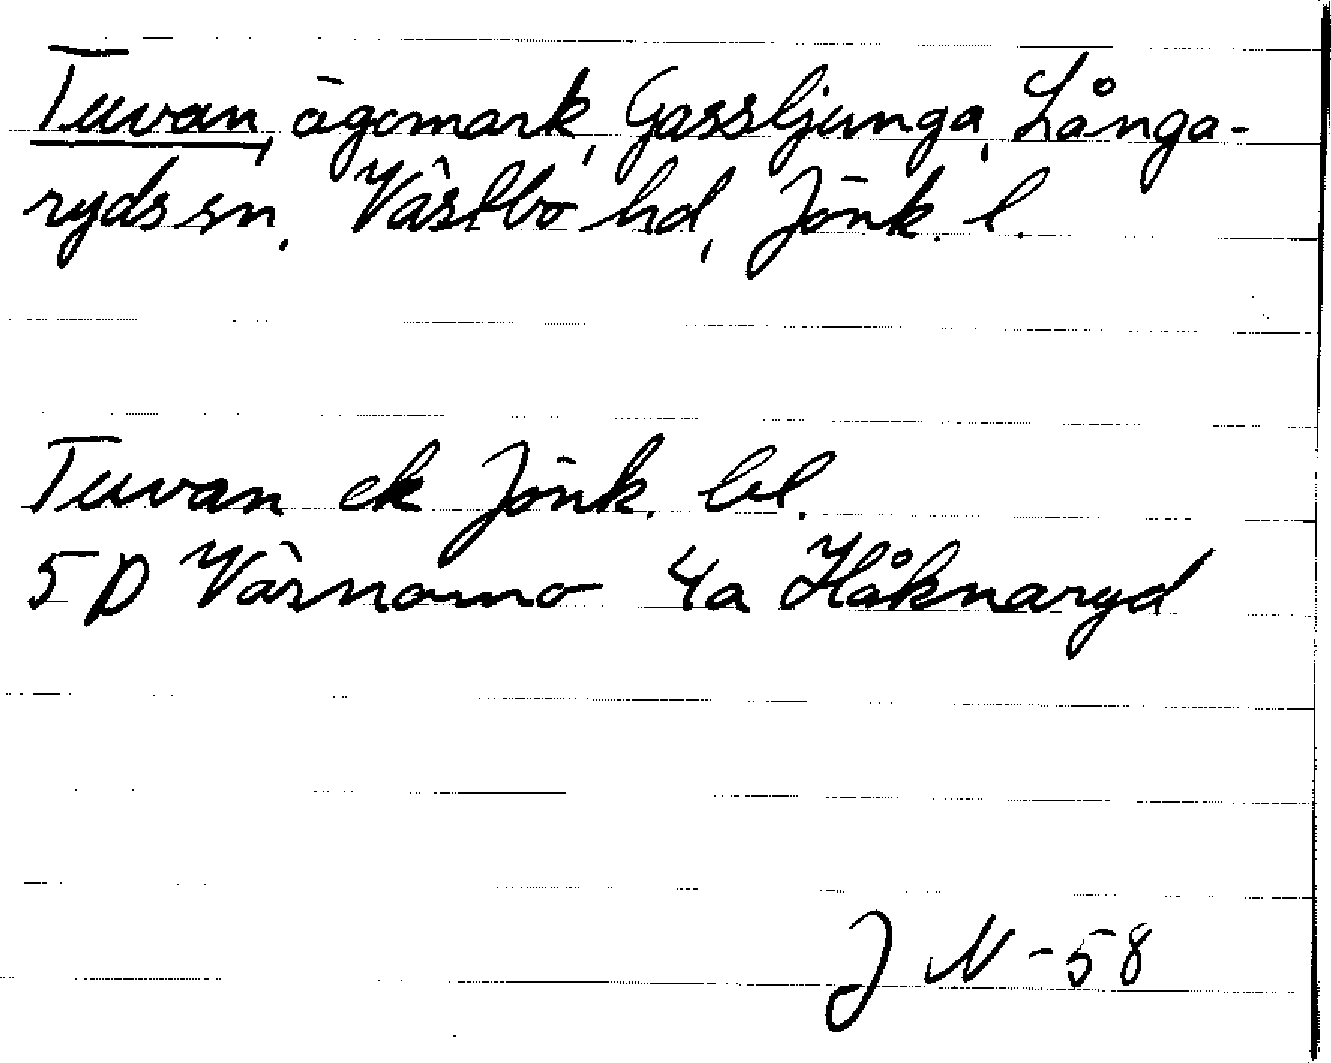 Tuvan, ägomark, Gassljunga, Långa-
ryds sn, Västbo hd, Jönk. l.
Tuvan ek Jönk. bl.
5D Värnamo 4a Håknaryd
J N -58